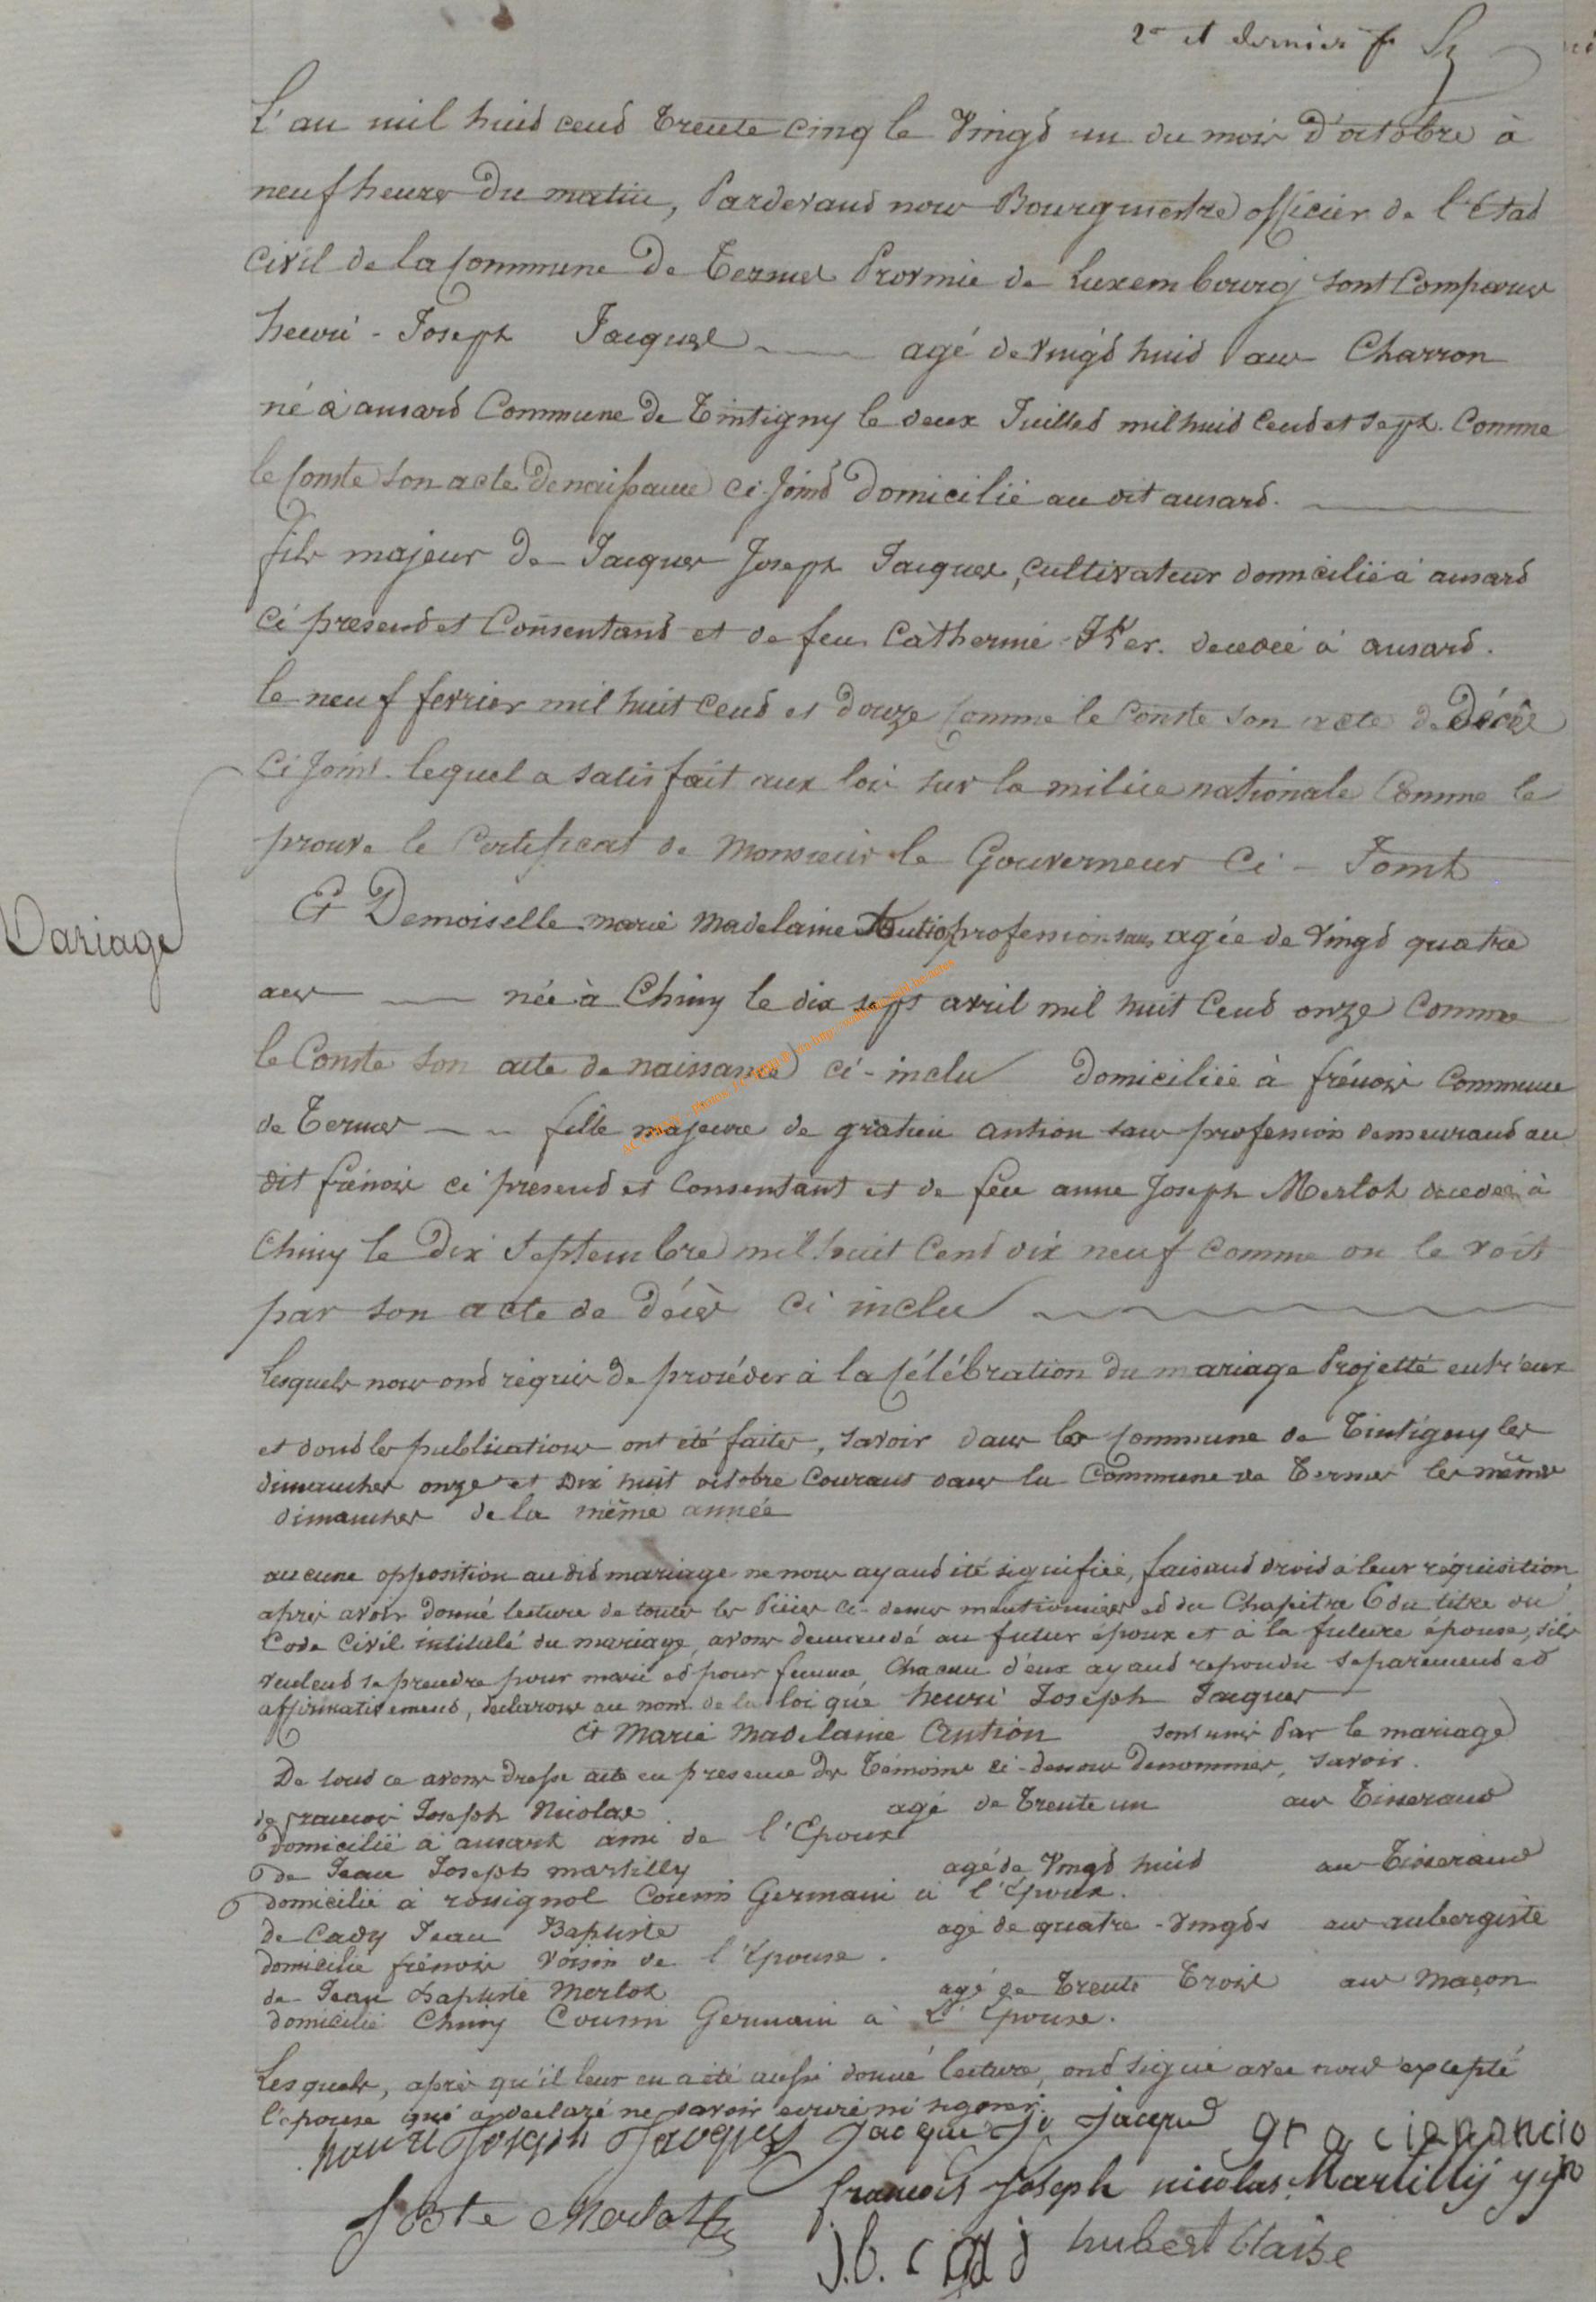 2e et dernier f
L'an mil huid cend Trente cinq le Vingd un du mois d'octobre à
neuf heures du matin, Pardevand nous Bourgmestre officier de l'Etad
Civil de la Commune de Termes Province de Luxembourg sont Comparus
henri - Joseph Jacques agé de Vingd huid ans Charron
né à ansard Commune de Tintigny le deux Juilled mil huid Cend et Sept. Comme
le Conste son acte de naissance ci-joind Domicilié au dit ansard.
fils majeur de Jacques Joseph Jacques, cultivateur domicilié à ansard
Ci presend et Consentand et de feu Catherine decedée à ansard.
le neuf fevrier mil huit Cend et Douze Comme le Conste son acte de Décès
Ci Joint. lequel a satisfait aux lois sur la milice nationale Comme le
prouve le Certificat de Monsieur le Gouverneur Ci - Joint
Mariage
Et Demoiselle marie Madelaine profession sans agée de Vingd quatre
ans née à Chiny le dix sept avril mil huit Cend onze Comme
le Conste son acte de naissance ci-inclu domiciliée à frénois Commune
de Termes fille majeure de gratien antion sans profession demeurand au
dit frénois ci présend et Consentant et de feue anne Joseph Merlot decedée à
Chiny le Dix Septembre mil huit Cend dix neuf comme on le voit
par son acte de Décès Ci inclu
Lesquels nous ond réquis de procéder à la Célébration du mariage Projetté entr'eux
et dond les publications ont été faites, savoir dans la Commune de Tintigny les
dimanches onze et Dix huit octobre Courant dans la Commune de Termes les mêmes
dimanches de la même année
aucune opposition au did mariage ne nous ayand été signifiée, faisand droid à leur réquisition
après avoir donné lecture de toutes les Pièces ci-dessus mentionnées ed du Chapitre 6 du titre du
Code Civil intitulé du mariage, avons demandé au futur époux et à la future épouse, s'ils
veulend se prendre pour mari ed pour femme Chacun d'eux ayand repondu separemend ed
affirmativemend, declarons au nom de la loi que henri Joseph Jacques
Et Marie Madelaine Antion sont unis Par le mariage
De toud ce avons dressé acte en presence des Témoins ci-dessous denommés, savoir.
de francois Joseph Nicolas agé de Trente un ans Tisserand
domicilié à ansart ami de l'Epoux
de Jean Joseph martilly agé de Vingd huid ans Tisserand
domicilié à rossignol Cousin Germain à l'époux.
de Cady Jean Baptiste agé de quatre - Vingds ans aubergiste
domicilié frénois Voisin de l'épouse.
de Jean Baptiste Merlot agé de Trente Trois ans Maçon
domicilié Chiny Cousin Germain à L'Epouse.
Lesquels, après qu'il leur en a été aussi donné lecture, ond signé avec nous excepté
l'epouse qui a declaré ne savoir ecrire ni signer.
henri Joseph Jacques Jacques Jacque gracienancio
francois Joseph nicolas Martilly
J Bte Merlot
j.b. cadi hubert blaise